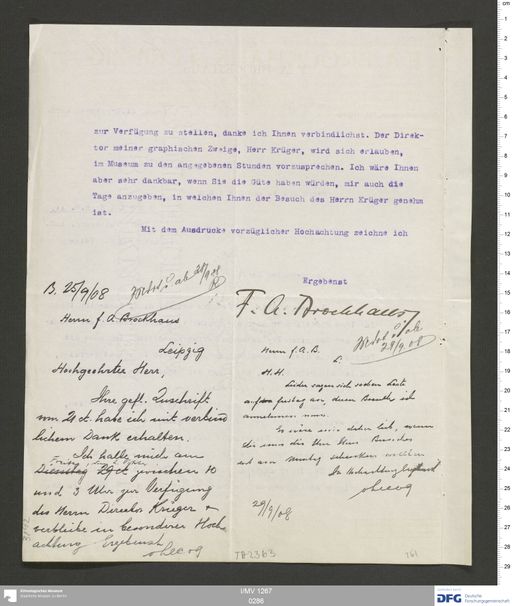 zur Verfügung zu stellen, danke ich Ihnen verbindlichst. Der Direk-
tor meiner graphischen Zweige, Herr Krüger, wird sich erlauben,
im Museum zu den angegebenen Stunden vorzusprechen. Ich wäre Ihnen
aber sehr dankbar, wenn Sie die Güte haben würden, mir auch die
Tage anzugeben, in welchen Ihnen der Besuch des Herrn Krüger genehm
ist.
Mit dem Ausdrucke vorzüglicher Hochachtung zeichne ich
Ergebenst
F. A. Brockhaus
B. 25/9/08
Herrn F. A. Brockhaus
Leipzig
Hochgeehrter Herr,
Ihre gefl. Zuschrift
vom 24 ct. habe ich mit verbind
lichem Dank erhalten.
Ich halte mich am
Dienstag 29 ct zwischen 10
und 3 Uhr zur Verfügung
des Herrn Direktor Krüger &
verbleibe in besonderer Hoch-
achtung Ergebenst
Herrn F. A. B.
L.
H. H.
Leider sagen sich soeben Leute
auf Freitag an, deren Besuch ich
annehmen muss.
29/9/08
161
I/MV 1267
0286
Ethnologisches Museum
Staatliche Museen zu Berlin
DFG
Deutsche
Forschungsgemeinschaft